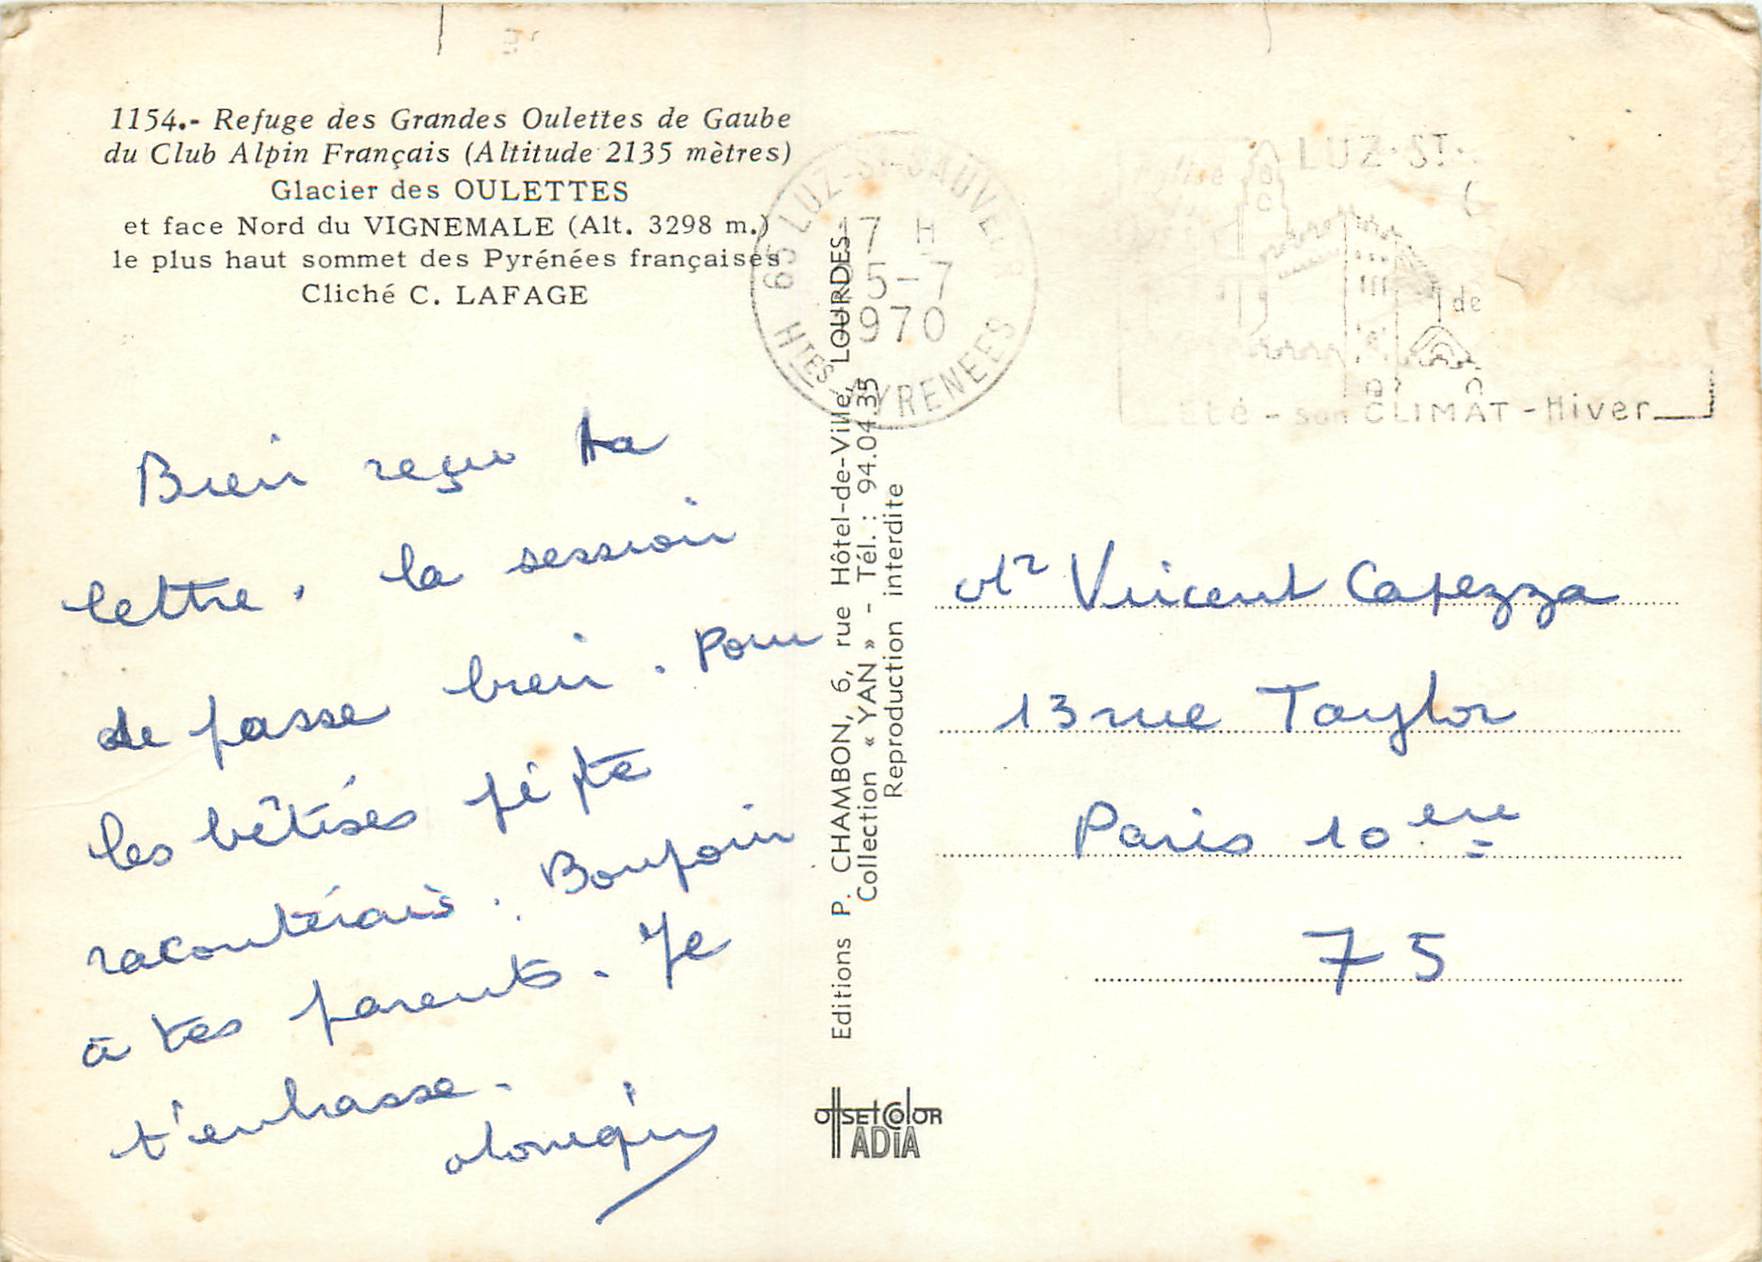 1154.- Refuge des Grandes Oulettes de Gaube
du Club Alpin Français (Altitude 2135 mètres)
Glacier des OULETTES
et face Nord du VIGNEMALE (Alt. 3298 m.)
le plus haut sommet des Pyrénées françaises
Cliché C. LAFAGE
Bien reçu ta
lettre, la session
se passe bien. Pour
les bêtises je te
raconterais. Bonjour
à tes parents. Je
t'embrasse.
Editions P. CHAMBON, 6, rue Hôtel-de-Ville, LOURDES
Collection « YAN » - Tél. : 94.04.35
Reproduction interdite
OffSEtColoR
IADIA
65 LUZ-ST-SAUVEUR
17 H
5-7
1970
HTES PYRENEES
LUZ-ST-
de
Eté - son CLIMAT - Hiver
Mr Vincent Capezza
13 rue Taylor
Paris 10 eme
75